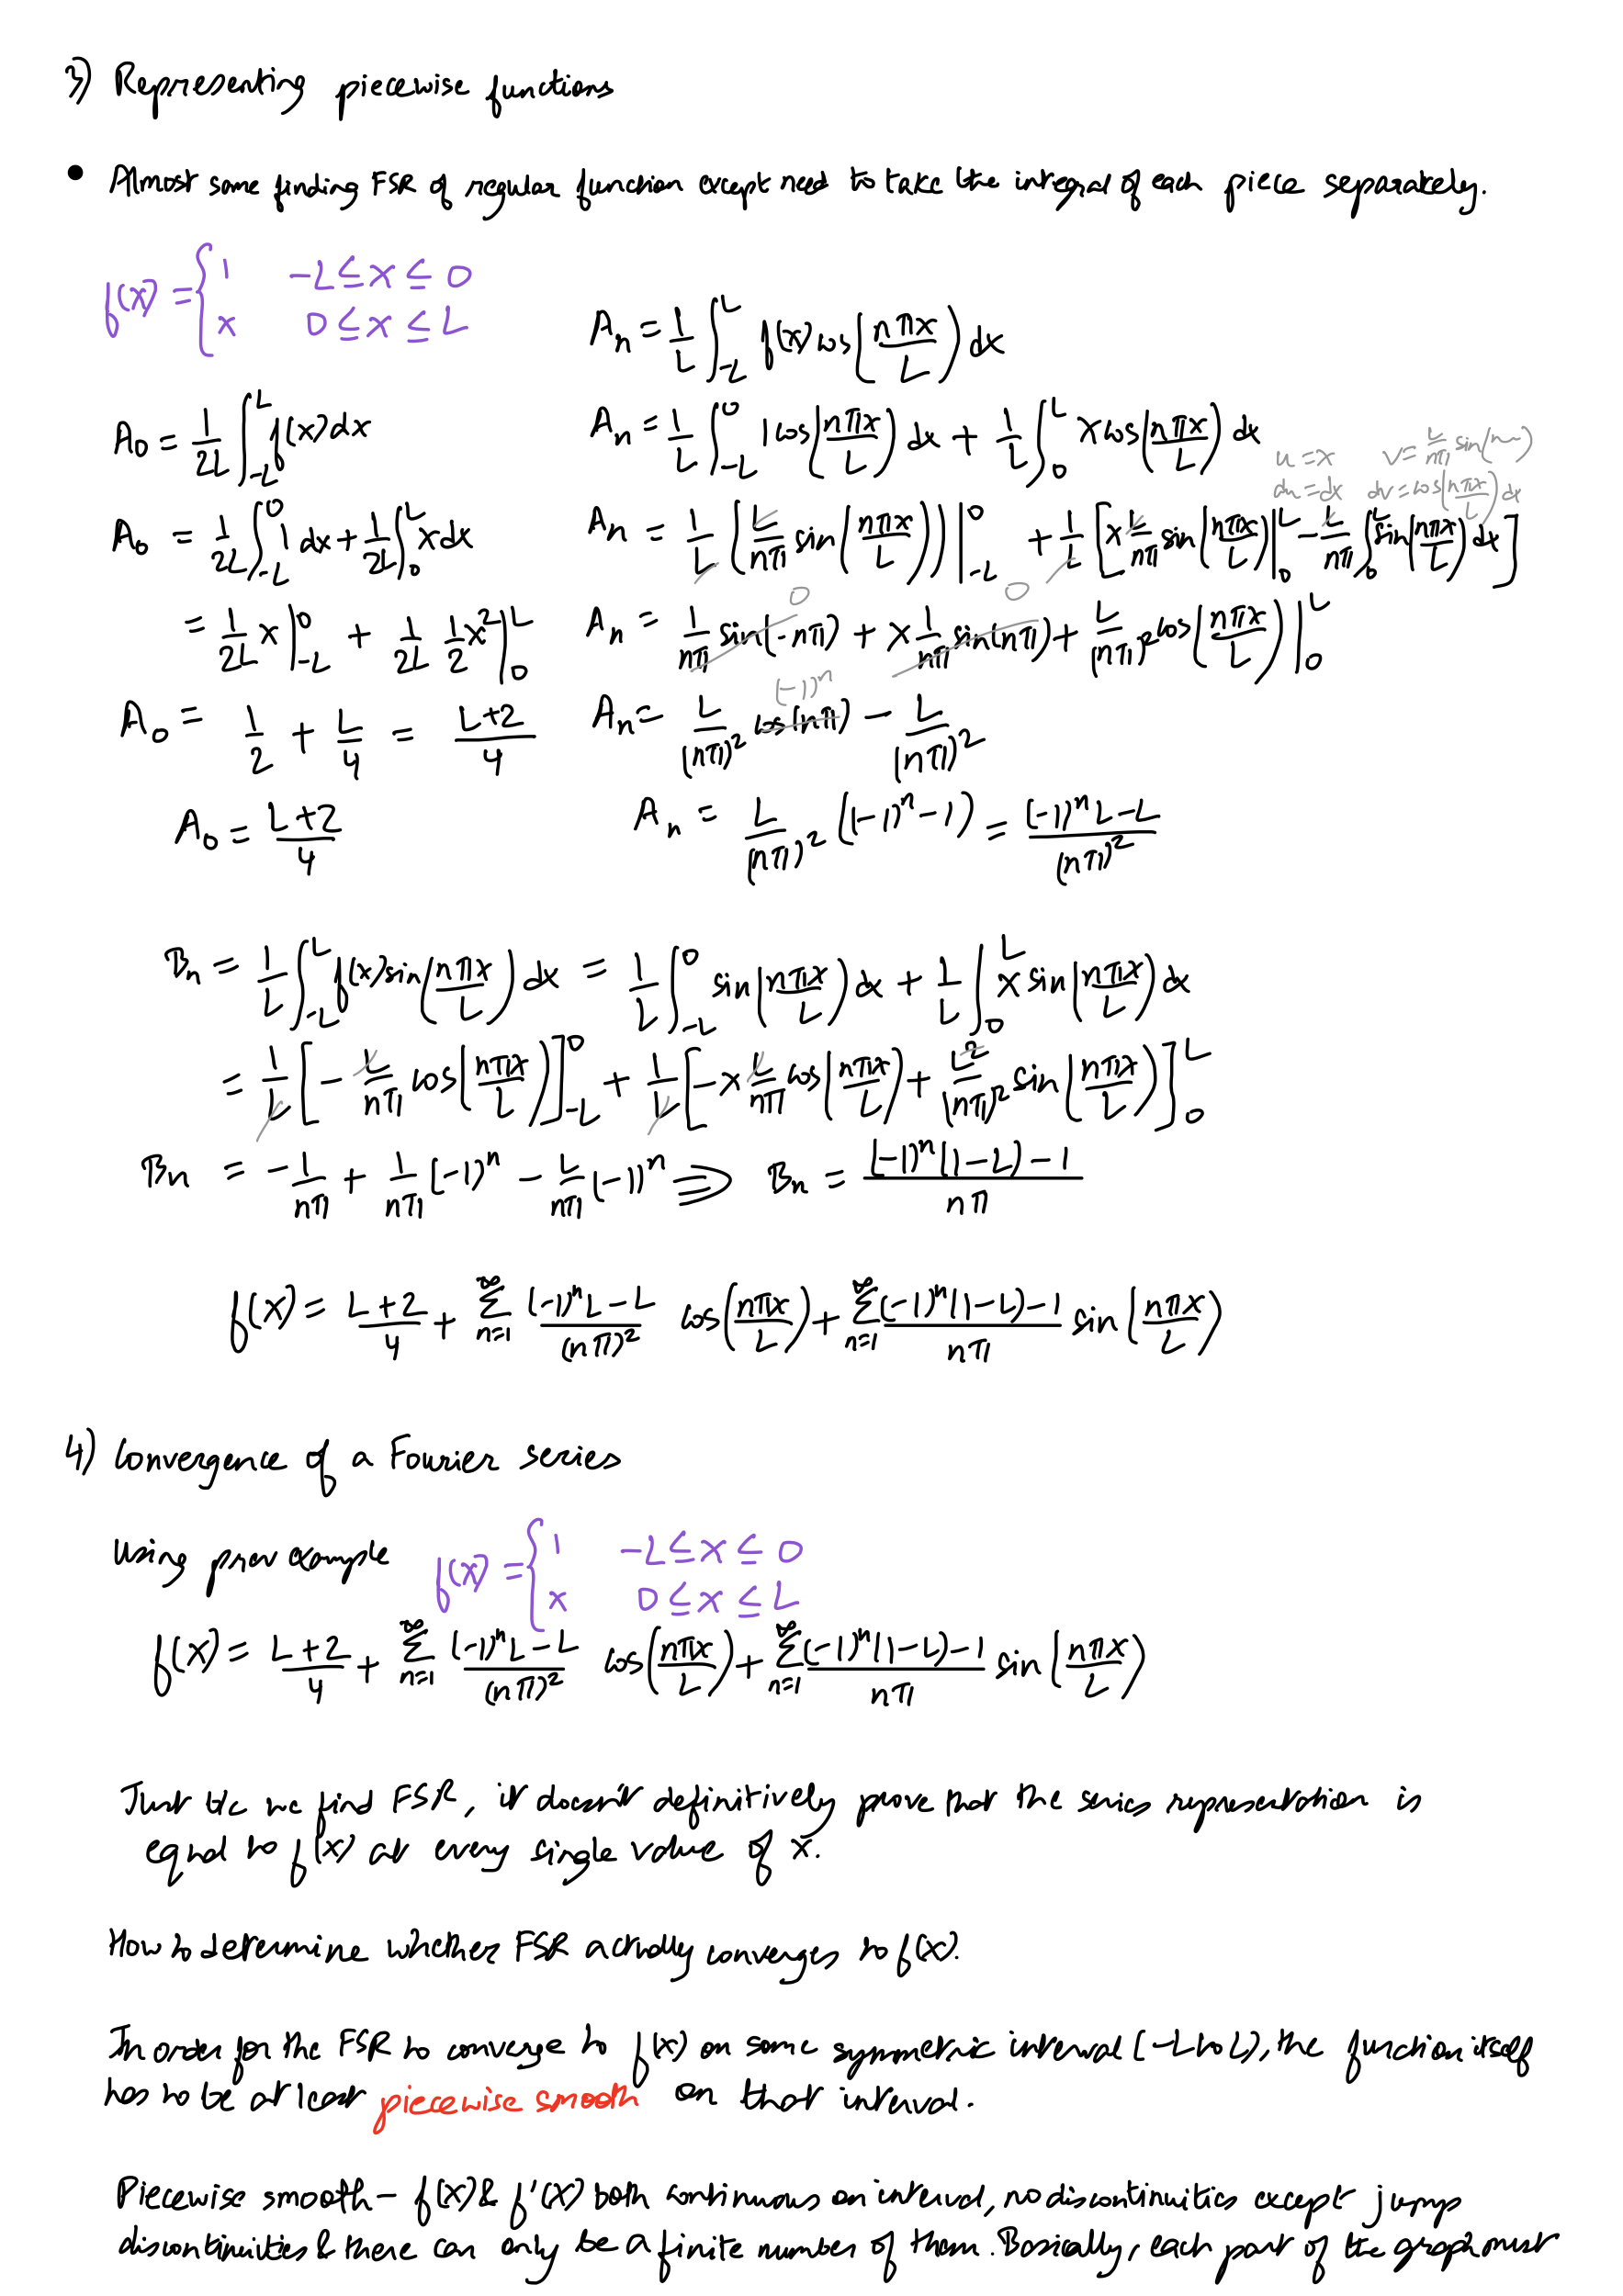 3) Representing piecewise functions
• Almost same finding FSR of regular function except need to take the integral of each piece separately.
f(x) = { 1   -L ≤ x ≤ 0
x   0 ≤ x ≤ L
A_n = 1/L ∫_{-L}^{L} f(x) cos(nπx/L) dx
A_0 = 1/2L ∫_{-L}^{L} f(x) dx
A_n = 1/L ∫_{-L}^{0} 1cos(nπx/L) dx + 1/L ∫_{0}^{L} x cos(nπx/L) dx
u = x   v = L/nπ sin(~)
du = dx   dv = cos(nπx/L) dx
A_0 = 1/2L ∫_{-L}^{0} 1 dx + 1/2L ∫_{0}^{L} x dx
A_n = 1/L (L/nπ sin(nπx/L))|_{-L}^{0} + 1/L [x L/nπ sin(nπx/L)|_{0}^{L} - L/nπ ∫_{0}^{L} sin(nπx/L) dx]
= 1/2L x|_{-L}^{0} + 1/2L 1/2 x²|_{0}^{L}
A_n = 1/nπ sin(-nπ) 0 + x 1/nπ sin(nπ) 0 + L/(nπ)² cos(nπx/L)|_{0}^{L}
A_0 = 1/2 + L/4 = L+2/4
A_n = L/(nπ)² cos(nπ) (-1)^n - L/(nπ)²
A_0 = L+2/4
A_n = L/(nπ)² ((-1)^n - 1) = (-1)^n L - L/(nπ)²
B_n = 1/L ∫_{-L}^{L} f(x) sin(nπx/L) dx = 1/L ∫_{-L}^{0} sin(nπx/L) dx + 1/L ∫_{0}^{L} x sin(nπx/L) dx
= 1/L [- L/nπ cos(nπx/L)]_{-L}^{0} + 1/L [-x L/nπ cos(nπx/L) + L²/(nπ)² sin(nπx/L)]_{0}^{L}
B_n = -1/nπ + 1/nπ (-1)^n - L/nπ (-1)^n ⇒ B_n = (-1)^n (1-L) - 1/nπ
f(x) = L+2/4 + Σ_{n=1}^{∞} (-1)^n L - L/(nπ)² cos(nπx/L) + Σ_{n=1}^{∞} (-1)^n (1-L) - 1/nπ sin(nπx/L)
4) Convergence of a Fourier series
Using prev example   f(x) = { 1   -L ≤ x ≤ 0
x   0 ≤ x ≤ L
f(x) = L+2/4 + Σ_{n=1}^{∞} (-1)^n L - L/(nπ)² cos(nπx/L) + Σ_{n=1}^{∞} (-1)^n (1-L) - 1/nπ sin(nπx/L)
Just b/c we find FSR, it doesn't definitively prove that the series representation is
equal to f(x) at every single value of x.
How to determine whether FSR actually converges to f(x).
In order for the FSR to converge to f(x) on some symmetric interval (-L to L), the function itself
has to be at least piecewise smooth on that interval.
Piecewise smooth - f(x) & f'(x) both continuous on interval, no discontinuities except jump
discontinuities & there can only be a finite number of them. Basically, each part of the graph must